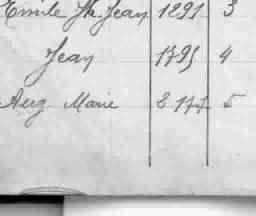 Emile Jh. Jean 1291 3
Jean 1795 4
Aug. Marie 2177 5